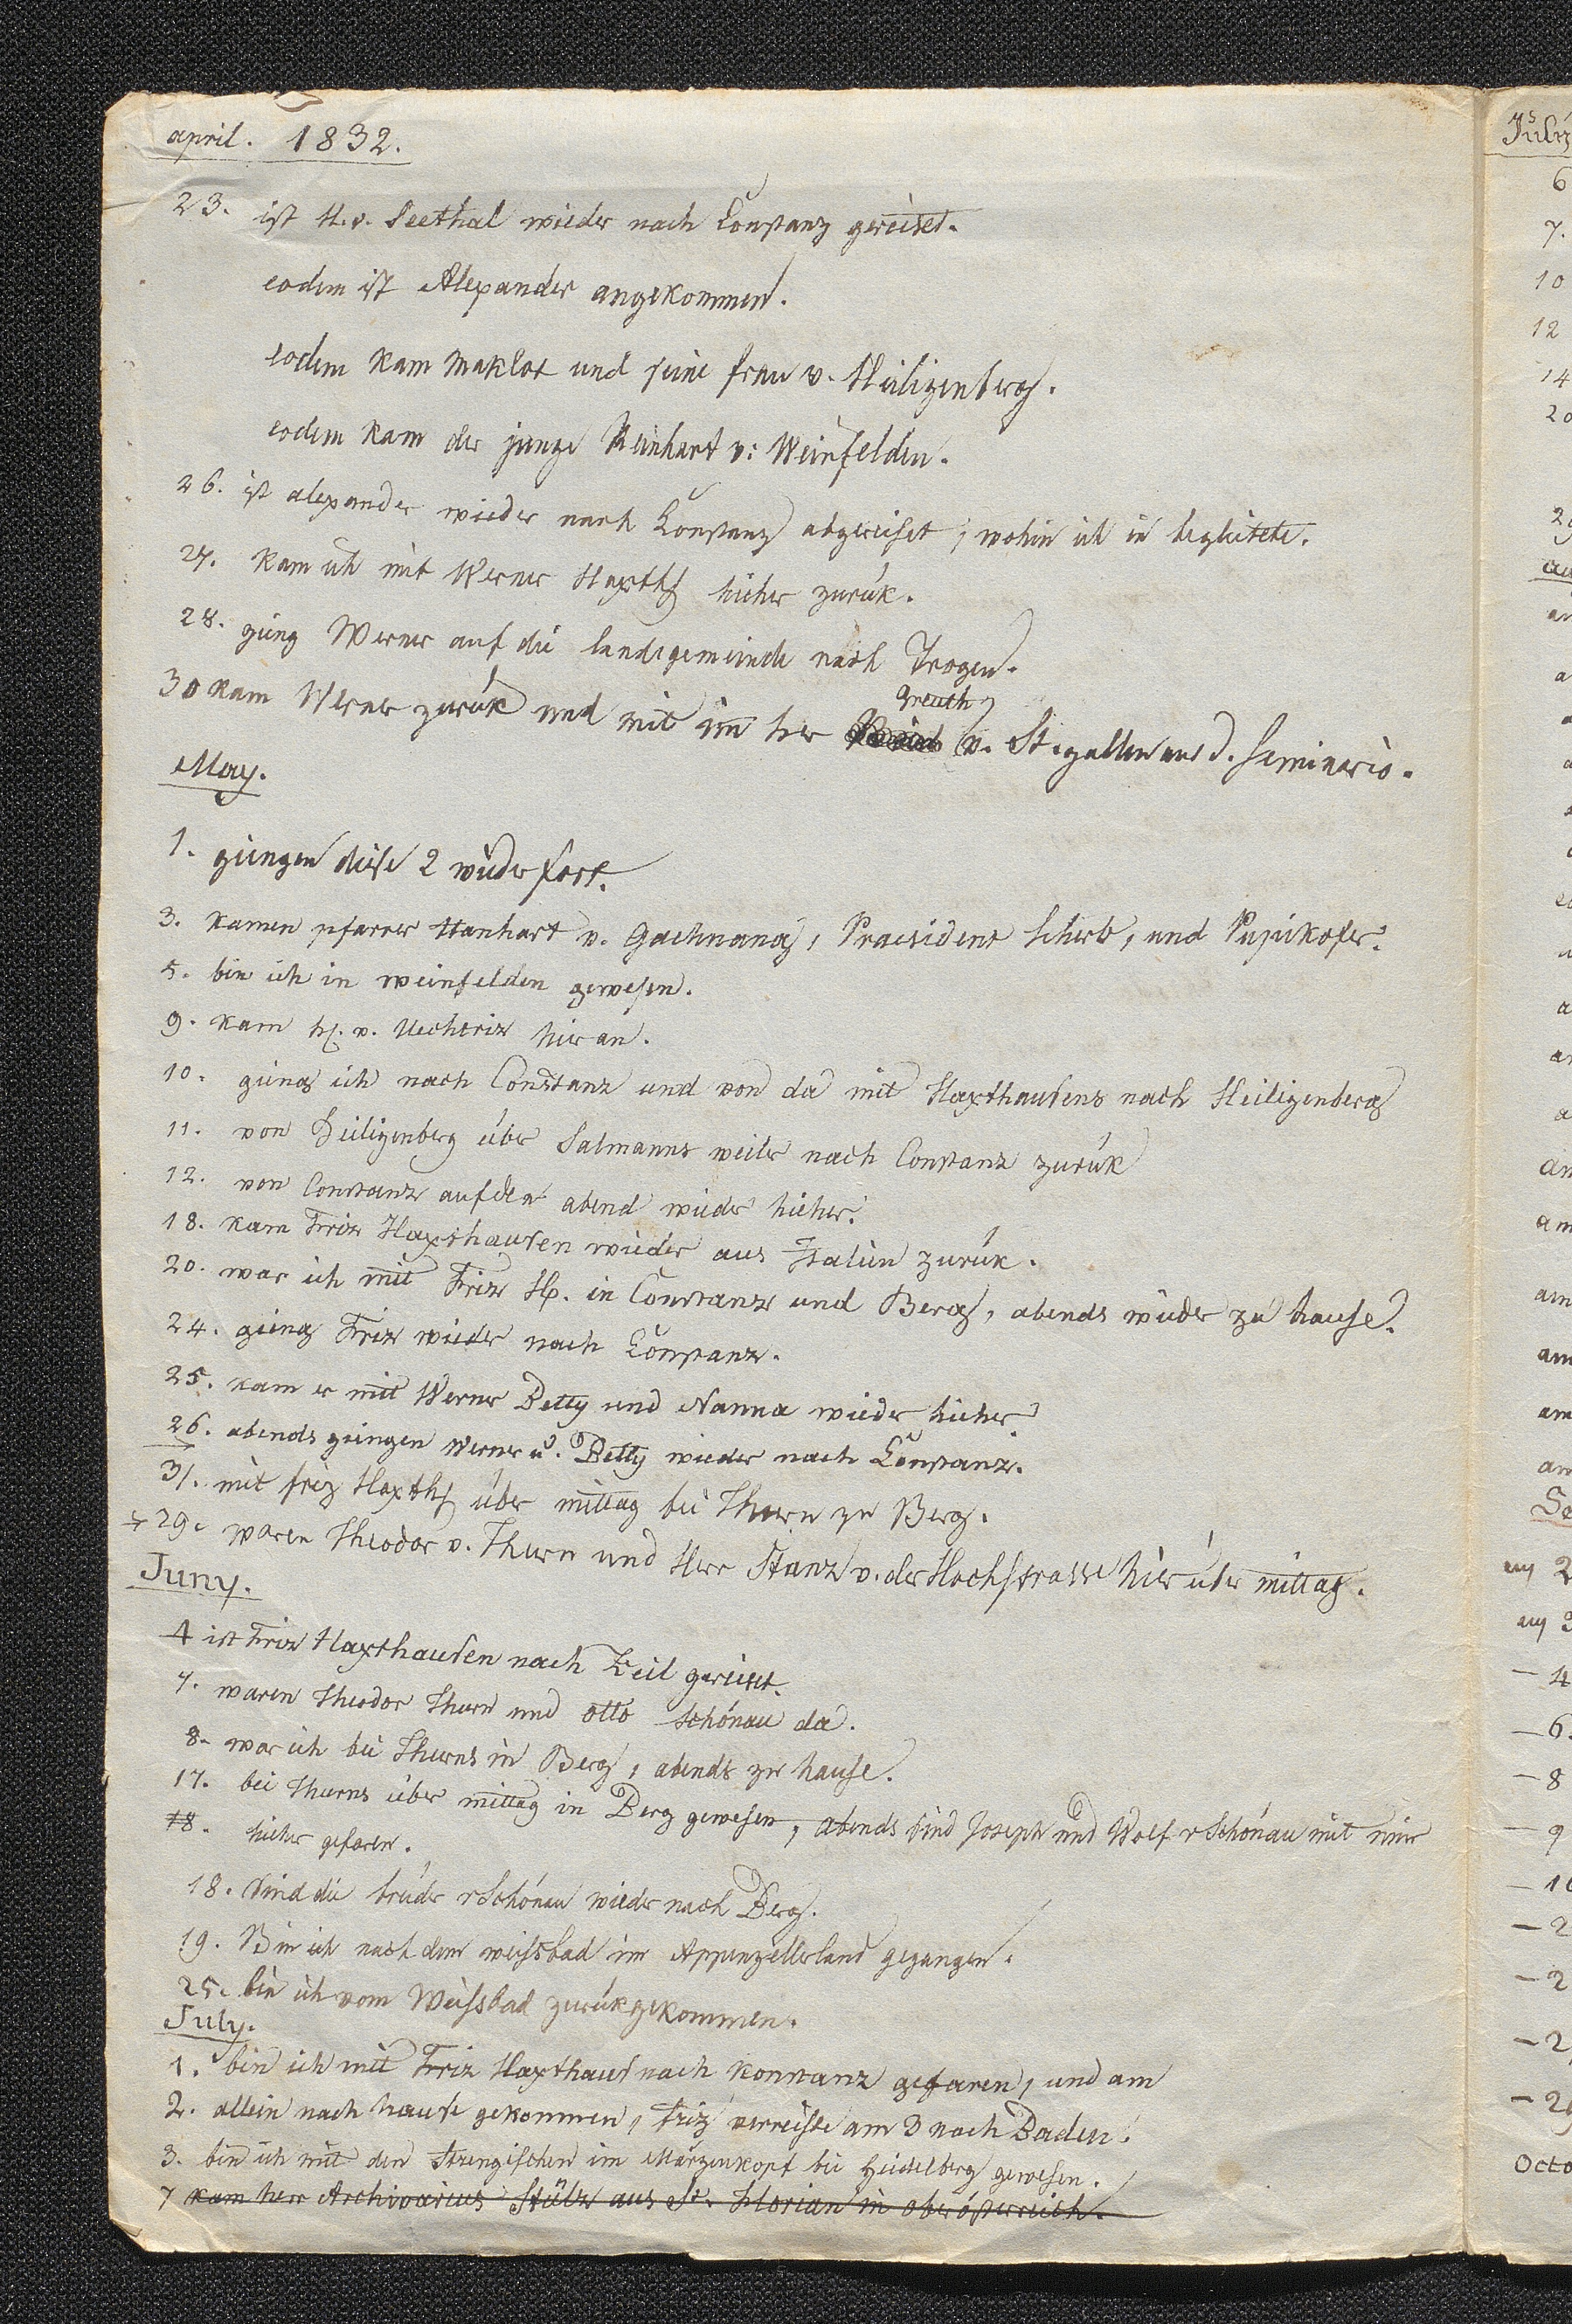 april. 1832.
23. ist H. v. Seethal wieder nach Constanz gereiset.
eodem ist Alexander angekommen.
eodem kam Maklot und seine frau v. Heiligenberg.
eodem kam der junge Reinhart v: Weinfelden.
26. ist alexander wieder nach Constanz abgereiset, wohin ich in begleitete.
27. kam ich mit Werner Haxth hieher zurük.
28. gieng Werner auf die landsgemeinde nach Trogen.
30 kam Werner zurük und mit im her greuth v. St. gallen aus d. Seminario.
May.
1. giengen diese 2 wieder fort.
3. kamen pfarrer Hanhart v. Gachnang, Praesident Scherb, und Pupikofer.
5. bin ich in weinfelden gewesen.
9. kam H. v. Uechtriz hier an.
10. gieng ich nach Constanz und von da mit Haxthausens nach Heiligenberg
11. von Heiligenberg über Salmannsweiler nach Constanz zurük
12. von Constanz auf den abend wieder hieher.
18. kam Friz Haxthausen wieder aus Italien zurük.
20. war ich mit Friz Hx. in Constanz und Berg, abends wieder zu hause.
24. gieng Friz wieder nach Constanz.
25. kam er mit Werner Betty und Nanna wieder hieher
26. abends giengen Werner u. Betty wieder nach Constanz.
31. mit friz Haxth über mittag bei Thurn zu Berg.
29. waren Theodor v. Thurn und Herr Stanz v. der Hochstrasse hier über mittag.
Juny.
4 ist Friz Haxthausen nach Zeil gereiset.
7. waren Theodor Thurn und Otto Schönau da.
8. war ich bei Thurns in Berg, abends zu hause.
17. bei Thurns über mittag in Berg gewesen, abends sind Joseph und Wolf v Schönau mit mir
18. hieher gefaren.
18. sind die brüder v Schönau wieder nach Berg.
19. Bin ich nach dem weissbad im Appenzellerland gegangen.
25. bin ich vom Weissbad zurükgekommen.
July.
1. bin ich mit Friz Haxthaus nach Konstanz gefaren, und am
2. allein nach hause gekommen, Friz verreiste am 3 nach Baden.
3. bin ich mit den Strengischen im Märzenkopf bei Heidelberg gewesen.
7 kam herr Archivarius Stülz aus St. Florian in oberösterreich.
July
6
7.
10
12
14
20
Octo